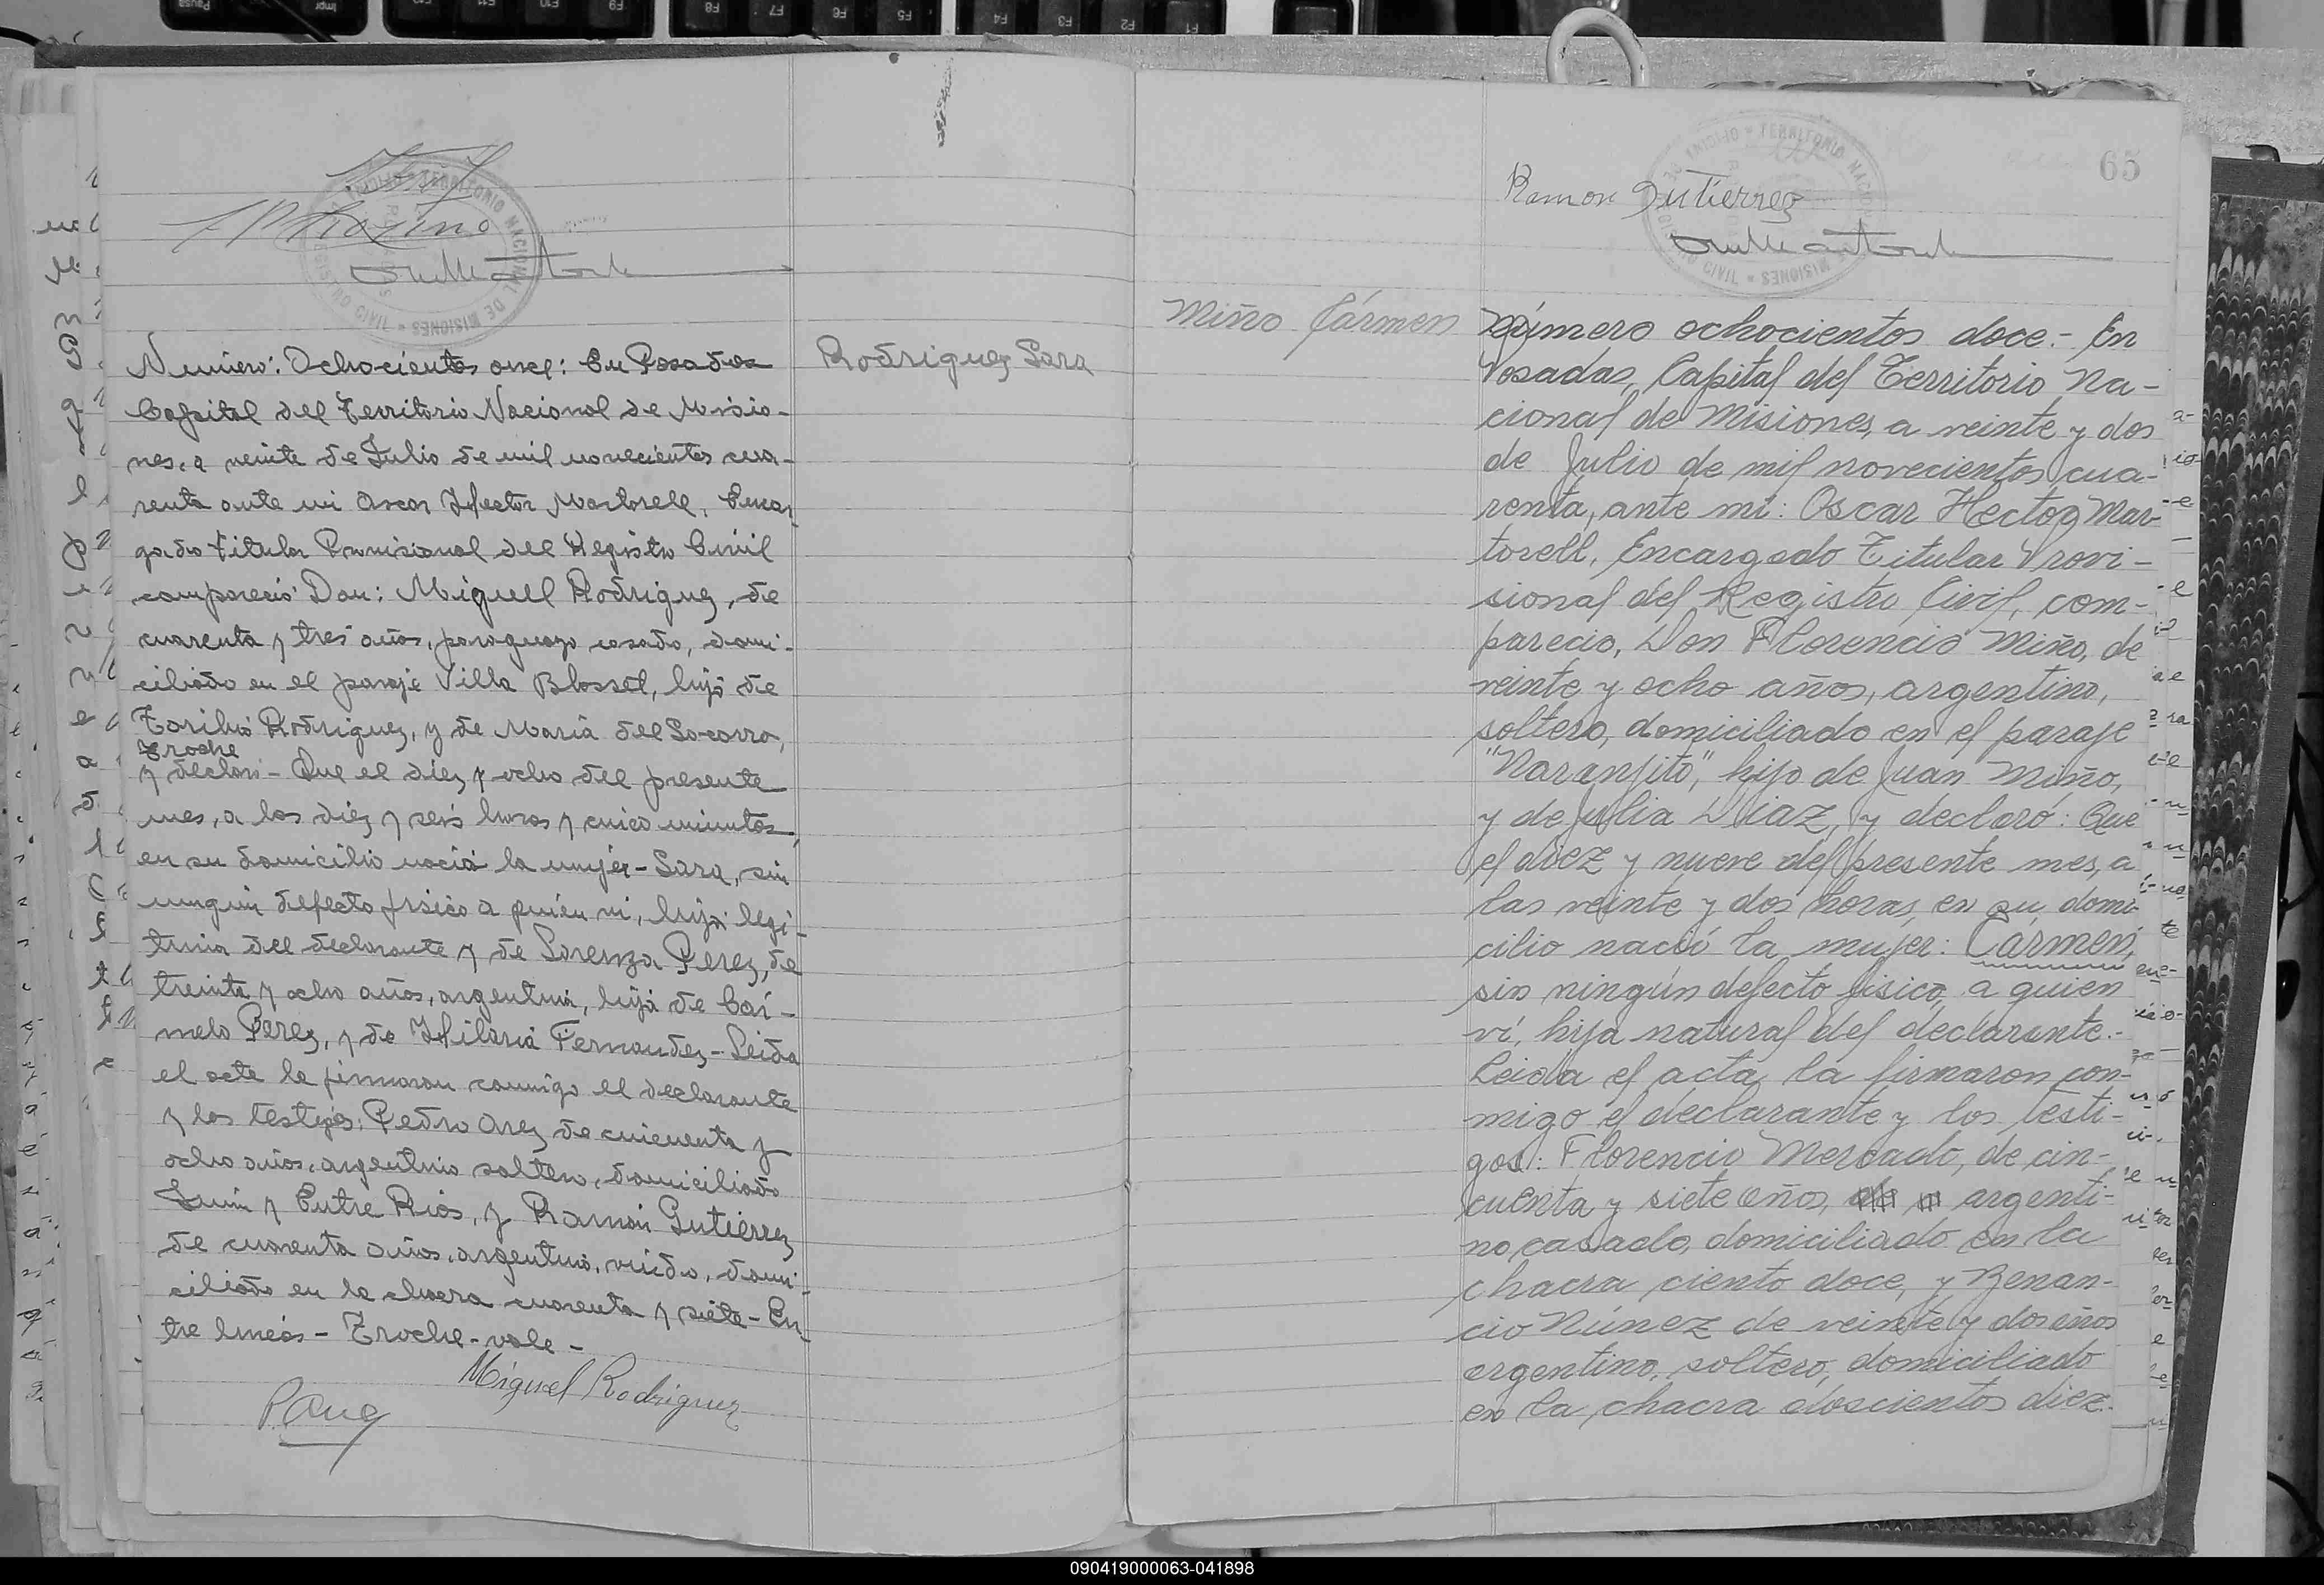 Numero: Ochocientos once: En Posadas
Capital del Territorio Nacional de Misio-
nes, a veinte de Julio de mil novecientos cua-
renta ante mi Oscar Hector Martorell, Encar-
gado Titular Provisional del Registro Civil
compareció Don: Miguel Rodriguez, de
cuarenta y tres años, paraguayo casado, domi-
ciliado en el paraje Villa Blosset, hijo de
Toribio Rodriguez, y de Maria del Socorro,
Troche
y declaró - Que el diez y ocho del presente
mes, a las diez y seis horas y cinco minutos,
en su domicilio nació la mujer - Sara, sin
ningun defecto fisico a quien vi, hija legi-
tima del declarante y de Lorenza Perez, de
treinta y ocho años, argentina, hija de Car-
melo Perez, y de Hilaria Fernandez - Leida
el acta la firmaron conmigo el declarante
y los testigos: Pedro Arez de cincuenta y
ocho años, argentino soltero, domiciliado
Junin y Entre Rios, y Ramón Gutierrez
de cuarenta años, argentino, viudo, domi-
ciliado en la chacra cuarenta y siete - En-
tre lineas - Troche - vale -
Miguel Rodriguez
Rodriguez Sara
65
Ramon Gutierrez
Miño Cármen
Número ochocientos doce.- En
Posadas, Capital del Territorio Na-
cional de Misiones, a veinte y dos
de Julio de mil novecientos cua-
renta, ante mí: Oscar Hector Mar-
torell, Encargado Titular Provi-
sional del Registro Civil, com-
parecio, Don Florencio Miño, de
veinte y ocho años, argentino,
soltero, domiciliado en el paraje
"Naranjito", hijo de Juan Miño,
y de Julia Diaz, y declaró: Que
el diez y nueve del presente mes, a
las veinte y dos horas, en su domi-
cilio nació la mujer: Carmen,
sin ningún defecto fisico, a quien
ví, hija natural del declarante.-
Leida el acta la firmaron con-
migo el declarante y los testi-
gos: Florencio Mercado, de cin-
cuenta y siete años, argenti-
no, casado, domiciliado en la
chacra ciento doce, y Benan-
cio Núnez de veinte y dos años
argentino, soltero, domiciliado
en la chacra doscientos diez.
090419000063-041898